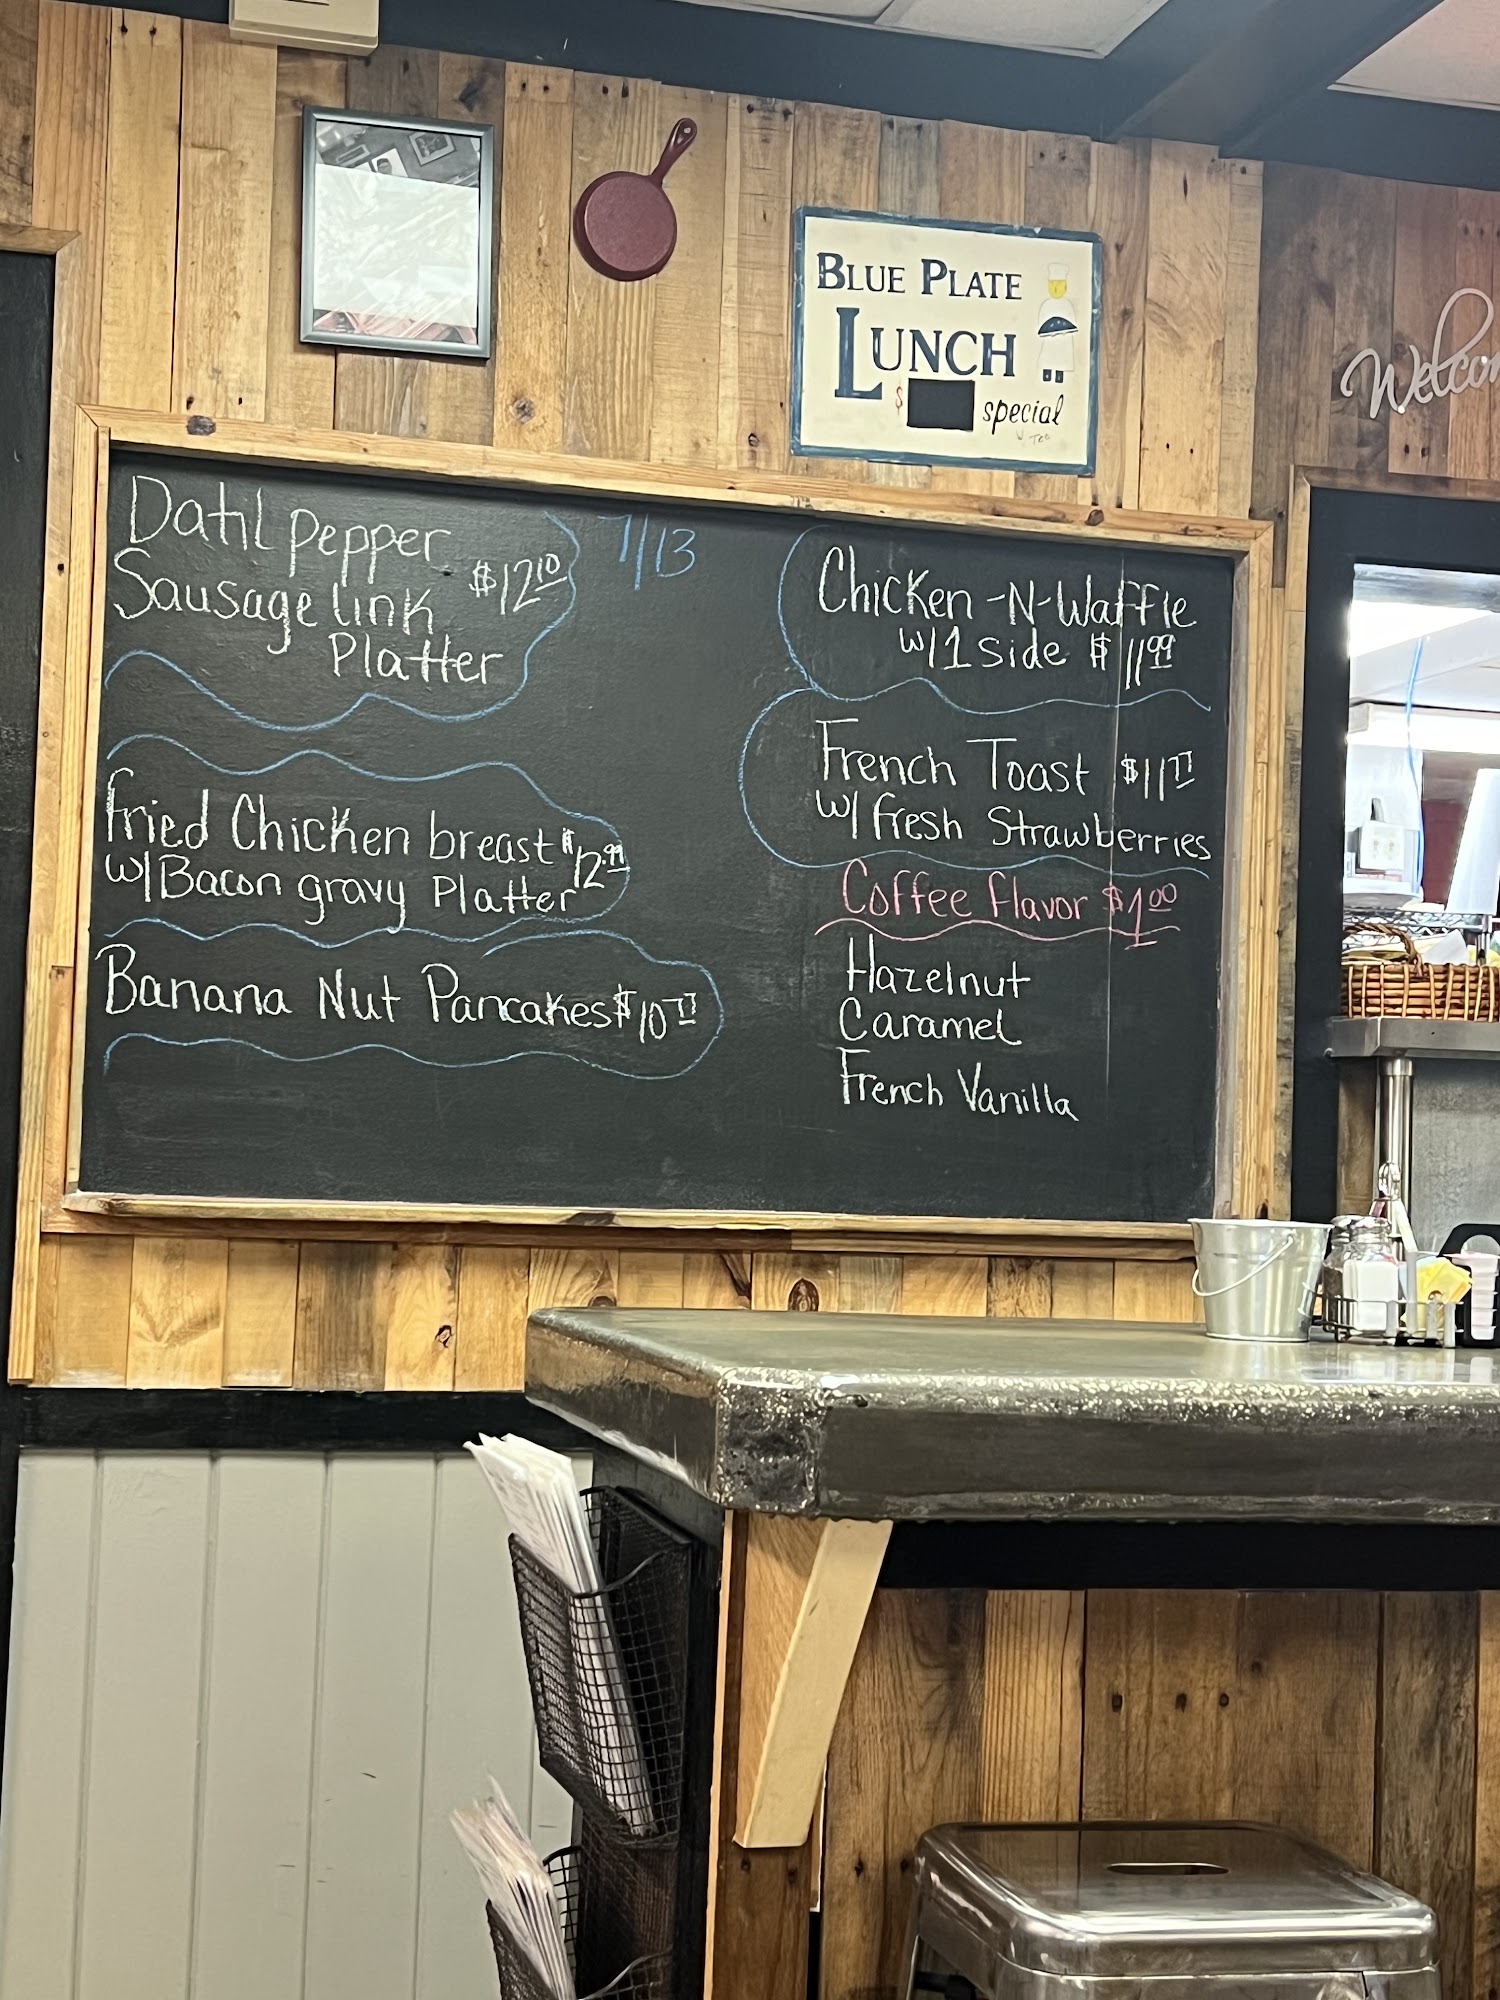 BLUE PLATE
LUNCH
$ special
Welco
Datil pepper
Sausage link $12.10
Platter
7/13
Fried Chicken breast $12.99
w/Bacon gravy Platter
Banana Nut Pancakes $10.77
Chicken-N-Waffle
w/1 side $11.99
French Toast $11.77
w/ fresh Strawberries
Coffee flavor $1.00
Hazelnut
Caramel
French Vanilla